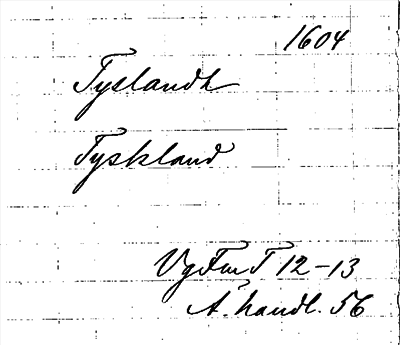 1604
Tyslandt
Tyskland
VgFmT 12-13
A. handl. 56